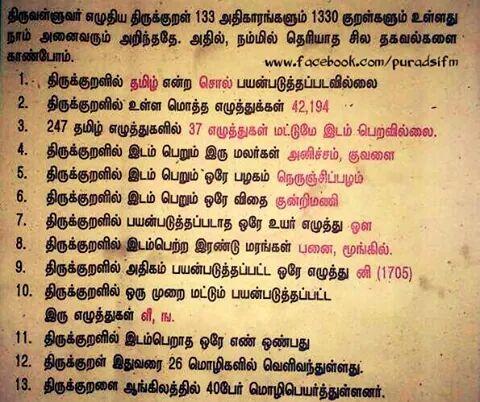 திருவள்ளுவர் எழுதிய திருக்குறள் 133 அதிகாரங்களும் 1330 குறள்களும் உள்ளது
நாம் அனைவரும் அறிந்ததே. அதில், நம்மில் தெரியாத சில தகவல்களை
காண்போம்.
www.facebook.com/puradsifm
1. திருக்குறளில் தமிழ் என்ற சொல் பயன்படுத்தப்படவில்லை
2. திருக்குறளில் உள்ள மொத்த எழுத்துக்கள் 42,194
3. 247 தமிழ் எழுத்துகளில் 37 எழுத்துகள் மட்டுமே இடம் பெறவில்லை.
4. திருக்குறளில் இடம் பெறும் இரு மலர்கள் அனிச்சம், குவளை
5. திருக்குறளில் இடம் பெறும் ஒரே பழகம் நெருஞ்சிப்பழம்
6. திருக்குறளில் இடம் பெறும் ஒரே விதை குன்றிமணி
7. திருக்குறளில் பயன்படுத்தப்படாத ஒரே உயர் எழுத்து ஔ
8. திருக்குறளில் இடம்பெற்ற இரண்டு மரங்கள் பனை, மூங்கில்.
9. திருக்குறளில் அதிகம் பயன்படுத்தப்பட்ட ஒரே எழுத்து னி (1705)
10. திருக்குறளில் ஒரு முறை மட்டும் பயன்படுத்தப்பட்ட
இரு எழுத்துகள் ளீ, ங.
11. திருக்குறளில் இடம்பெறாத ஒரே எண் ஒண்பது
12. திருக்குறள் இதுவரை 26 மொழிகளில் வெளிவந்துள்ளது.
13. திருக்குறளை ஆங்கிலத்தில் 40பேர் மொழிபெயர்த்துள்ளனர்.